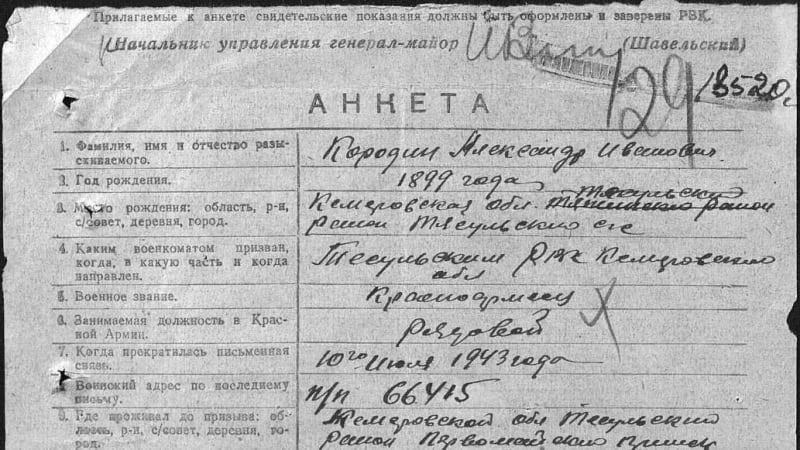 Прилагаемые к анкете свидетельские показания должны быть оформлены и заверены РВК.
Начальник управления генерал-майор (Шавельский)
129
АНКЕТА
1. Фамилия, имя и отчество разыскиваемого.
Кородин Александр Иванович
2. Год рождения.
1899 года
3. Место рождения: область, р-н, с/совет, деревня, город.
Кемеровская обл. Тисульский район
район Тисульского с/с
4. Каким военкоматом призван, когда, в какую часть и когда направлен.
Тесульским РВК Кемеровского
обл
5. Военное звание.
Красноармеец
6. Занимаемая должность в Красной Армии.
Рядовой
7. Когда прекратилась письменная связь.
10го Июля 1943 года
Воинский адрес по последнему письму.
п/п 66415
9. Где проживал до призыва: область, р-н, с/совет, деревня, город.
Кемеровской обл Тесульский
район Первомайского прииск